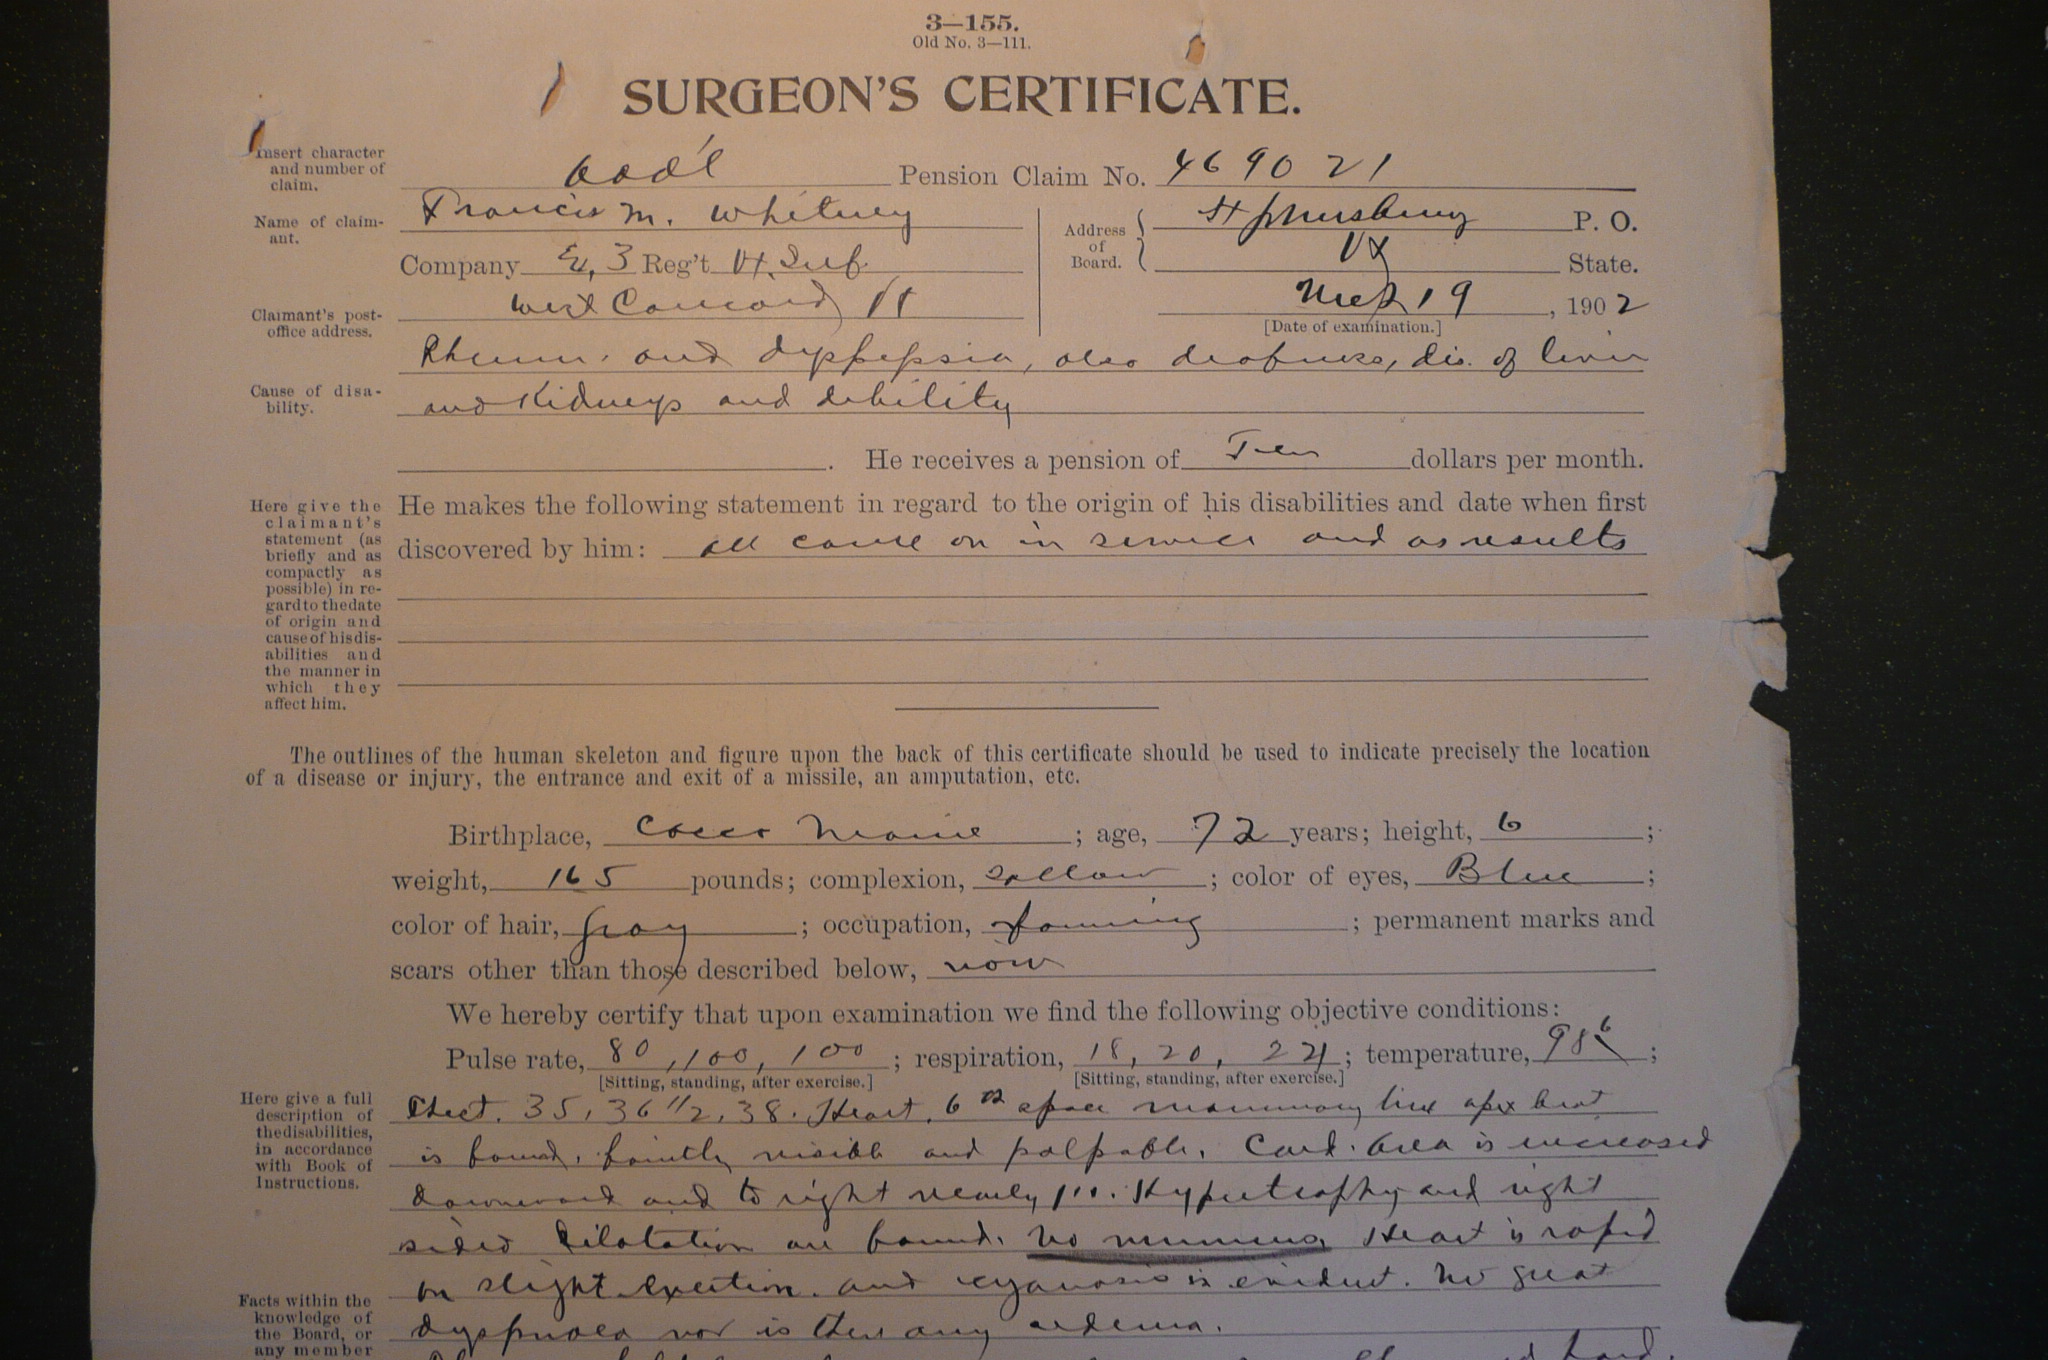 3—155.
Old No. 3—111.
SURGEON'S CERTIFICATE.
Insert character
and number of
claim.
Add'l Pension Claim No. 469021
Name of claim-
ant.
Francis M. Whitney
Address
of
Board.
St Johnsbury P. O.
Company E, 3 Reg't Vt. Inf.
Vt State.
Claimant's post-
office address.
West Concord Vt
19, 1902
[Date of examination.]
Cause of disa-
bility.
Rheum. and dyspepsia, also deafness, dis. of liver
and Kidneys and debility
. He receives a pension of Ten dollars per month.
Here give the
claimant's
statement (as
briefly and as
compactly as
possible) in re-
gard to the date
of origin and
cause of his dis-
abilities and
the manner in
which they
affect him.
He makes the following statement in regard to the origin of his disabilities and date when first
discovered by him: all came on in service and as results
The outlines of the human skeleton and figure upon the back of this certificate should be used to indicate precisely the location
of a disease or injury, the entrance and exit of a missile, an amputation, etc.
Birthplace, Maine ; age, 72 years; height, 6 ;
weight, 165 pounds; complexion, sallow ; color of eyes, Blue ;
color of hair, gray ; occupation, farming ; permanent marks and
scars other than those described below,
We hereby certify that upon examination we find the following objective conditions:
Pulse rate, 80, 100, 100 ; respiration, 18, 20, 24 ; temperature, 98 6 ;
[Sitting, standing, after exercise.] [Sitting, standing, after exercise.]
Here give a full
description of
the disabilities,
in accordance
with Book of
Instructions.
Chest. 35, 36 1/2, 38. Heart. 6th space mammary line apex beat
is found, faintly visible and palpable. Card. area is increased
downward and to right nearly 1 in. Hypertrophy and right
sided dilatation are found. No murmurs. Heart is rapid
on slight exertion and cyanosis is evident. No great
dyspnoea nor is there any oedema.
Facts within the
knowledge of
the Board, or
any member
hard.